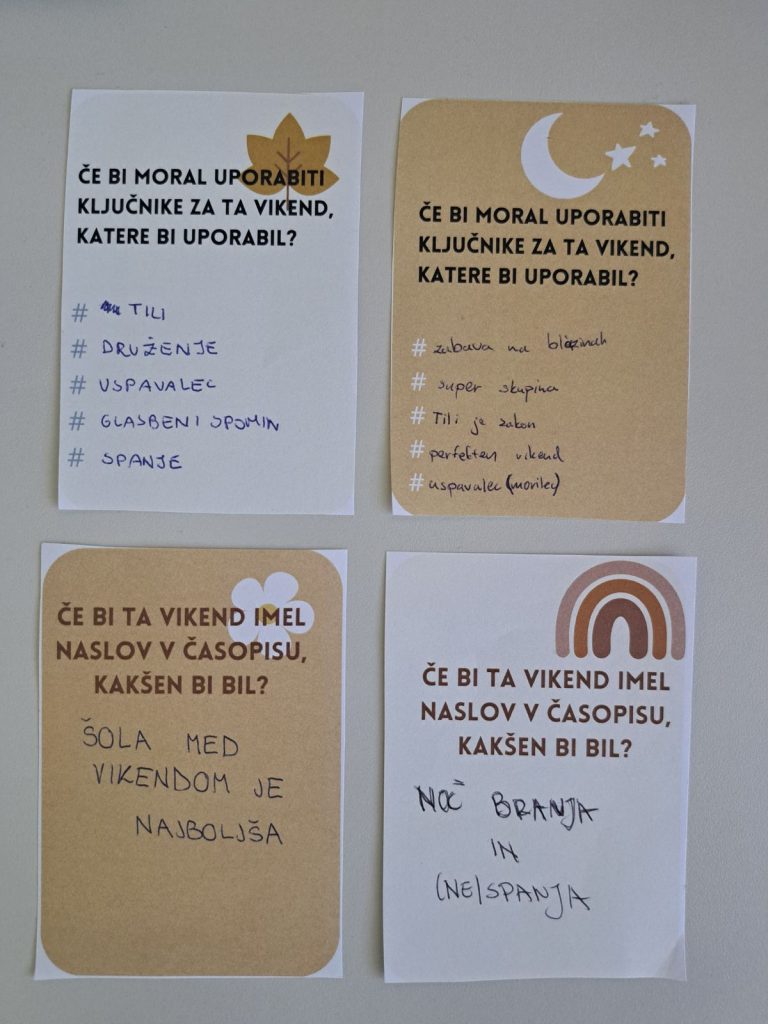 ČE BI MORAL UPORABITI
KLJUČNIKE ZA TA VIKEND,
KATERE BI UPORABIL?
# TILI
# DRUŽENJE
# USPAVALEC
# GLASBENI SPOMIN
# SPANJE
ČE BI MORAL UPORABITI
KLJUČNIKE ZA TA VIKEND,
KATERE BI UPORABIL?
# zabava na blazinah
# super skupina
# Tili je zakon
# perfekten vikend
# uspavalec (morilec)
ČE BI TA VIKEND IMEL
NASLOV V ČASOPISU,
KAKŠEN BI BIL?
ŠOLA MED
VIKENDOM JE
NAJBOLJŠA
ČE BI TA VIKEND IMEL
NASLOV V ČASOPISU,
KAKŠEN BI BIL?
NOČ BRANJA
IN
(NE)SPANJA